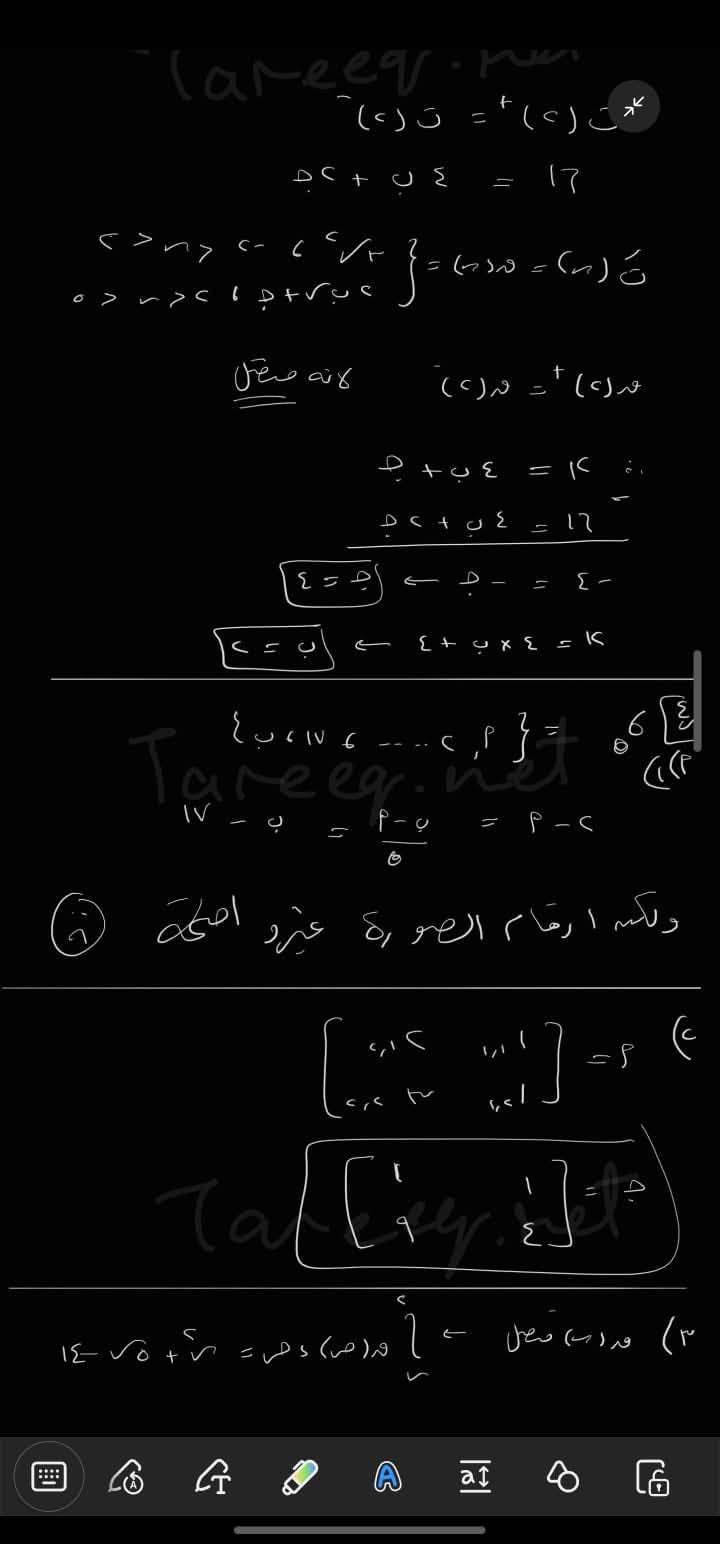 Tareeq.net
ت(٢)⁺ = ت(٢)⁻
١٦ = ٤ب + ٢جـ
تَ(س) = ق(س) = { ٣س٢ ، -٢ < س < ٢
٢ب س + جـ ، ٢ < س < ٥
ق(٢)⁺ = ق(٢)⁻ لأنه متصل
∴ ١٢ = ٤ب + جـ
١٦ = ٤ب + ٢جـ
-٤ = -جـ ← جـ = ٤
١٢ = ٤×ب + ٤ ← ب = ٢
٤
١)أ) σ٥ = {أ، ٢، ....، ١٧، ب}
٢ - أ = ب-أ/٥ = ب - ١٧
ولكن ارقام الصورة غير واضحة
Tareeq.net
٢) أ = [١ ١،١ ٢ ١،٢
١ ٢،١ ٣ ٢،٢]
جـ = [١ ١
٤ ٩]
Tareeq.net
٣) ق(س) متصل ← ∫ ق(ص) ءص = س٢ + ٥س - ١٤